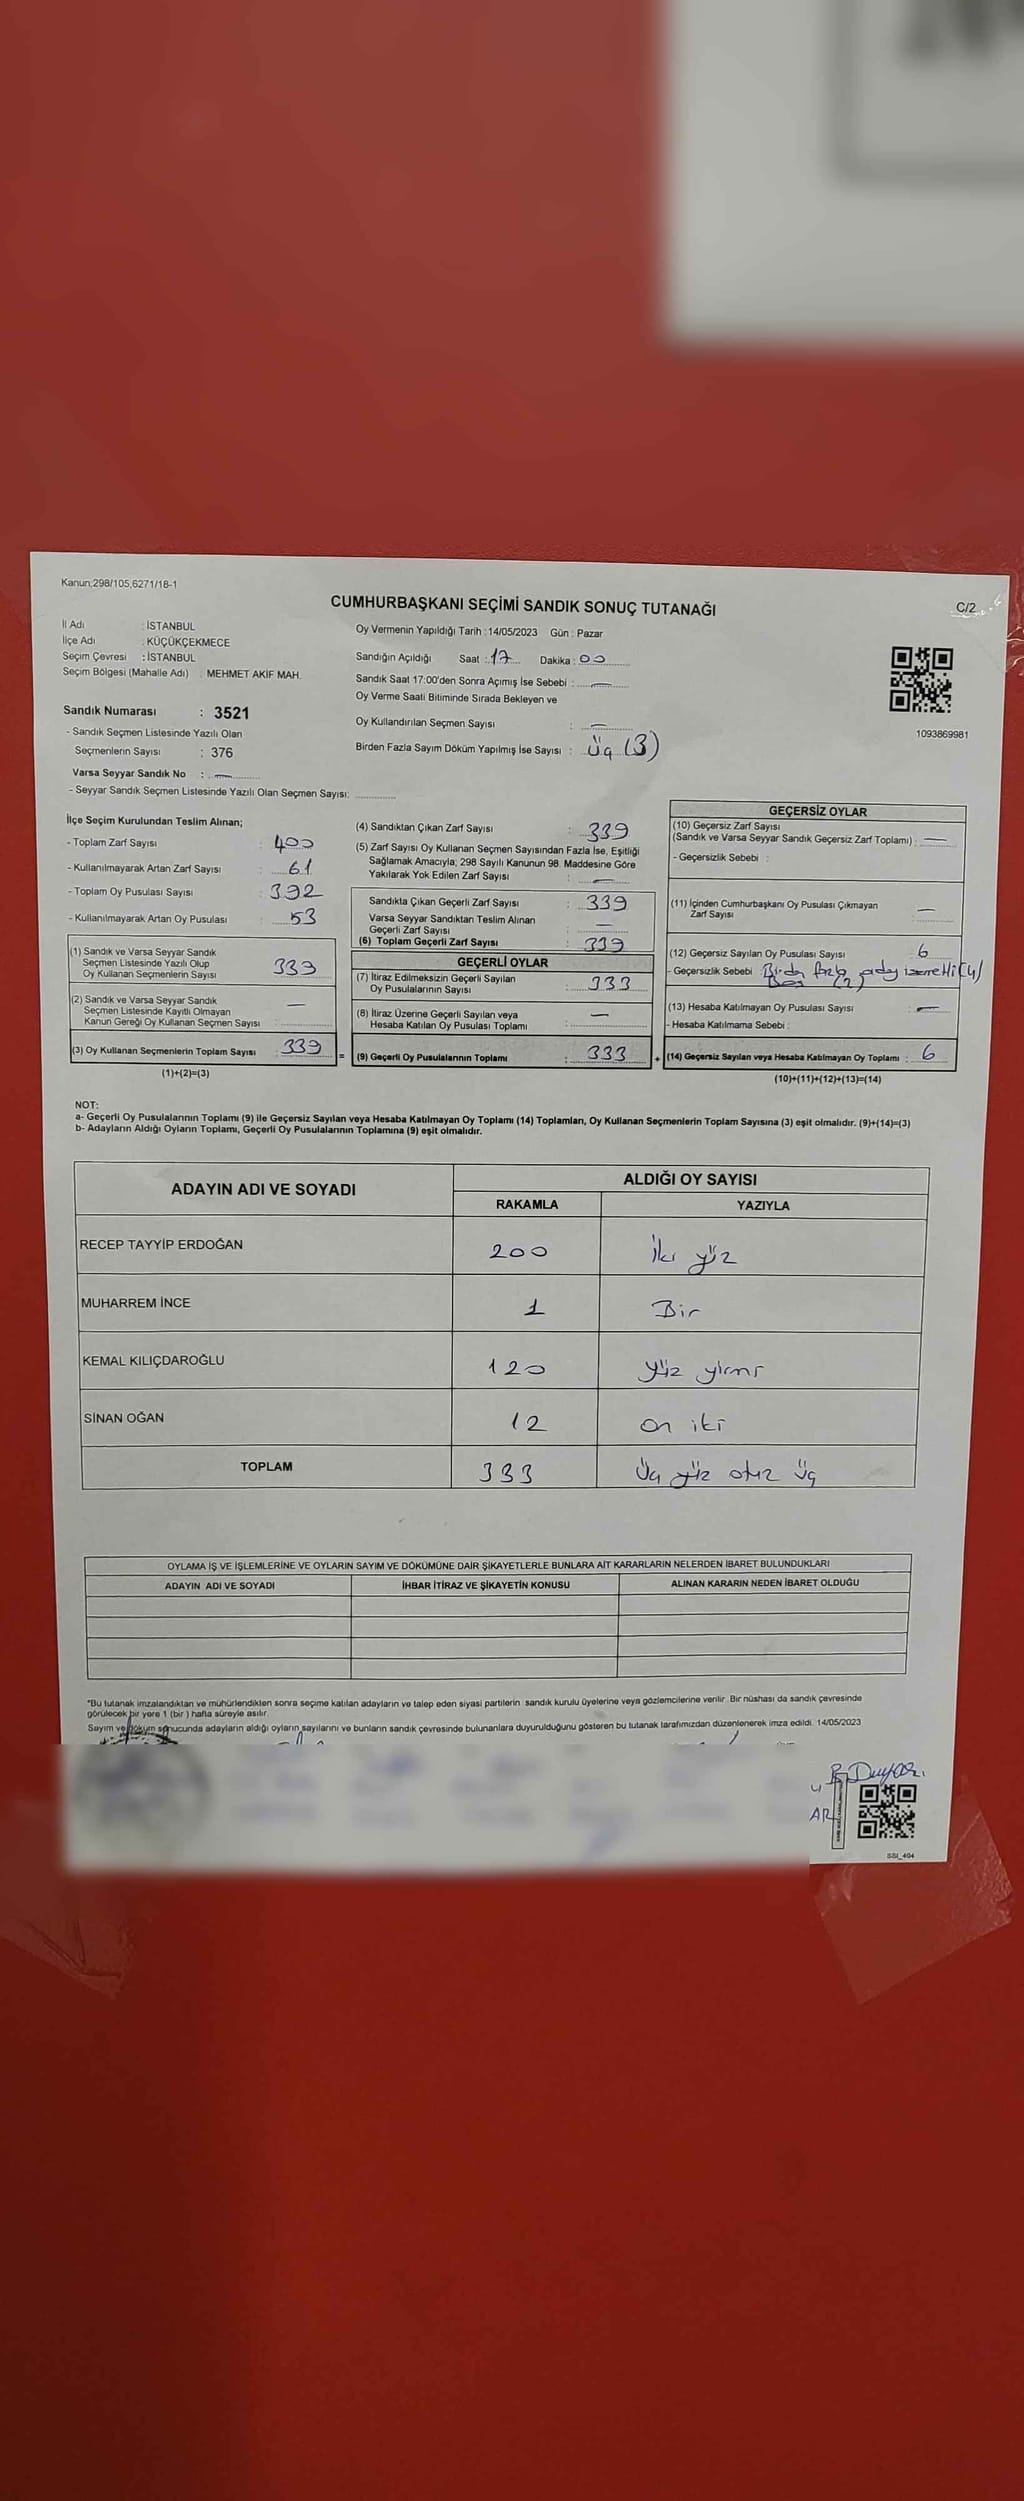 Kanun;298/105,6271/18-1
CUMHURBAŞKANI SEÇİMİ SANDIK SONUÇ TUTANAĞI
C/2
İl Adı : İSTANBUL
İlçe Adı : KÜÇÜKÇEKMECE
Seçim Çevresi : İSTANBUL
Seçim Bölgesi (Mahalle Adı) : MEHMET AKİF MAH.
Sandık Numarası : 3521
- Sandık Seçmen Listesinde Yazılı Olan
Seçmenlerin Sayısı : 376
Varsa Seyyar Sandık No : —
- Seyyar Sandık Seçmen Listesinde Yazılı Olan Seçmen Sayısı:
Oy Vermenin Yapıldığı Tarih : 14/05/2023 Gün : Pazar
Sandığın Açıldığı Saat : 17 Dakika : 00
Sandık Saat 17:00'den Sonra Açımış İse Sebebi : —
Oy Verme Saati Bitiminde Sırada Bekleyen ve
Oy Kullandırılan Seçmen Sayısı : —
Birden Fazla Sayım Döküm Yapılmış İse Sayısı : Üç (3)
1093869981
İlçe Seçim Kurulundan Teslim Alınan;
- Toplam Zarf Sayısı : 400
- Kullanılmayarak Artan Zarf Sayısı : 61
- Toplam Oy Pusulası Sayısı : 392
- Kullanılmayarak Artan Oy Pusulası : 53
(1) Sandık ve Varsa Seyyar Sandık
Seçmen Listesinde Yazılı Olup
Oy Kullanan Seçmenlerin Sayısı : 339
(2) Sandık ve Varsa Seyyar Sandık
Seçmen Listesinde Kayıtlı Olmayan
Kanun Gereği Oy Kullanan Seçmen Sayısı : —
(3) Oy Kullanan Seçmenlerin Toplam Sayısı : 339
(1)+(2)=(3)
(4) Sandıktan Çıkan Zarf Sayısı : 339
(5) Zarf Sayısı Oy Kullanan Seçmen Sayısından Fazla İse, Eşitliği
Sağlamak Amacıyla; 298 Sayılı Kanunun 98. Maddesine Göre
Yakılarak Yok Edilen Zarf Sayısı : —
Sandıkta Çıkan Geçerli Zarf Sayısı : 339
Varsa Seyyar Sandıktan Teslim Alınan
Geçerli Zarf Sayısı : —
(6) Toplam Geçerli Zarf Sayısı : 339
GEÇERLİ OYLAR
(7) İtiraz Edilmeksizin Geçerli Sayılan
Oy Pusulalarının Sayısı : 333
(8) İtiraz Üzerine Geçerli Sayılan veya
Hesaba Katılan Oy Pusulası Toplamı : —
= (9) Geçerli Oy Pusulalarının Toplamı : 333
GEÇERSİZ OYLAR
(10) Geçersiz Zarf Sayısı
(Sandık ve Varsa Seyyar Sandık Geçersiz Zarf Toplamı) : —
- Geçersizlik Sebebi :
(11) İçinden Cumhurbaşkanı Oy Pusulası Çıkmayan
Zarf Sayısı : —
(12) Geçersiz Sayılan Oy Pusulası Sayısı : 6
- Geçersizlik Sebebi : Birden fazla aday işaretli (4)
Boş (2)
(13) Hesaba Katılmayan Oy Pusulası Sayısı : —
- Hesaba Katılmama Sebebi :
+ (14) Geçersiz Sayılan veya Hesaba Katılmayan Oy Toplamı : 6
(10)+(11)+(12)+(13)=(14)
NOT:
a- Geçerli Oy Pusulalarının Toplamı (9) ile Geçersiz Sayılan veya Hesaba Katılmayan Oy Toplamı (14) Toplamları, Oy Kullanan Seçmenlerin Toplam Sayısına (3) eşit olmalıdır. (9)+(14)=(3)
b- Adayların Aldığı Oyların Toplamı, Geçerli Oy Pusulalarının Toplamına (9) eşit olmalıdır.
ADAYIN ADI VE SOYADI
ALDIĞI OY SAYISI
RAKAMLA YAZIYLA
RECEP TAYYİP ERDOĞAN 200 İki yüz
MUHARREM İNCE 1 Bir
KEMAL KILIÇDAROĞLU 120 yüz yirmi
SİNAN OĞAN 12 on iki
TOPLAM 333 Üç yüz otuz üç
OYLAMA İŞ VE İŞLEMLERİNE VE OYLARIN SAYIM VE DÖKÜMÜNE DAİR ŞİKAYETLERLE BUNLARA AİT KARARLARIN NELERDEN İBARET BULUNDUKLARI
ADAYIN ADI VE SOYADI İHBAR İTİRAZ VE ŞİKAYETİN KONUSU ALINAN KARARIN NEDEN İBARET OLDUĞU
*Bu tutanak imzalandıktan ve mühürlendikten sonra seçime katılan adayların ve talep eden siyasi partilerin sandık kurulu üyelerine veya gözlemcilerine verilir. Bir nüshası da sandık çevresinde
görülecek bir yere 1 (bir) hafta süreyle asılır.
Sayım ve döküm sonucunda adayların aldığı oyların sayılarını ve bunların sandık çevresinde bulunanlara duyurulduğunu gösteren bu tutanak tarafımızdan düzenlenerek imza edildi. 14/05/2023
AR
SSI_404